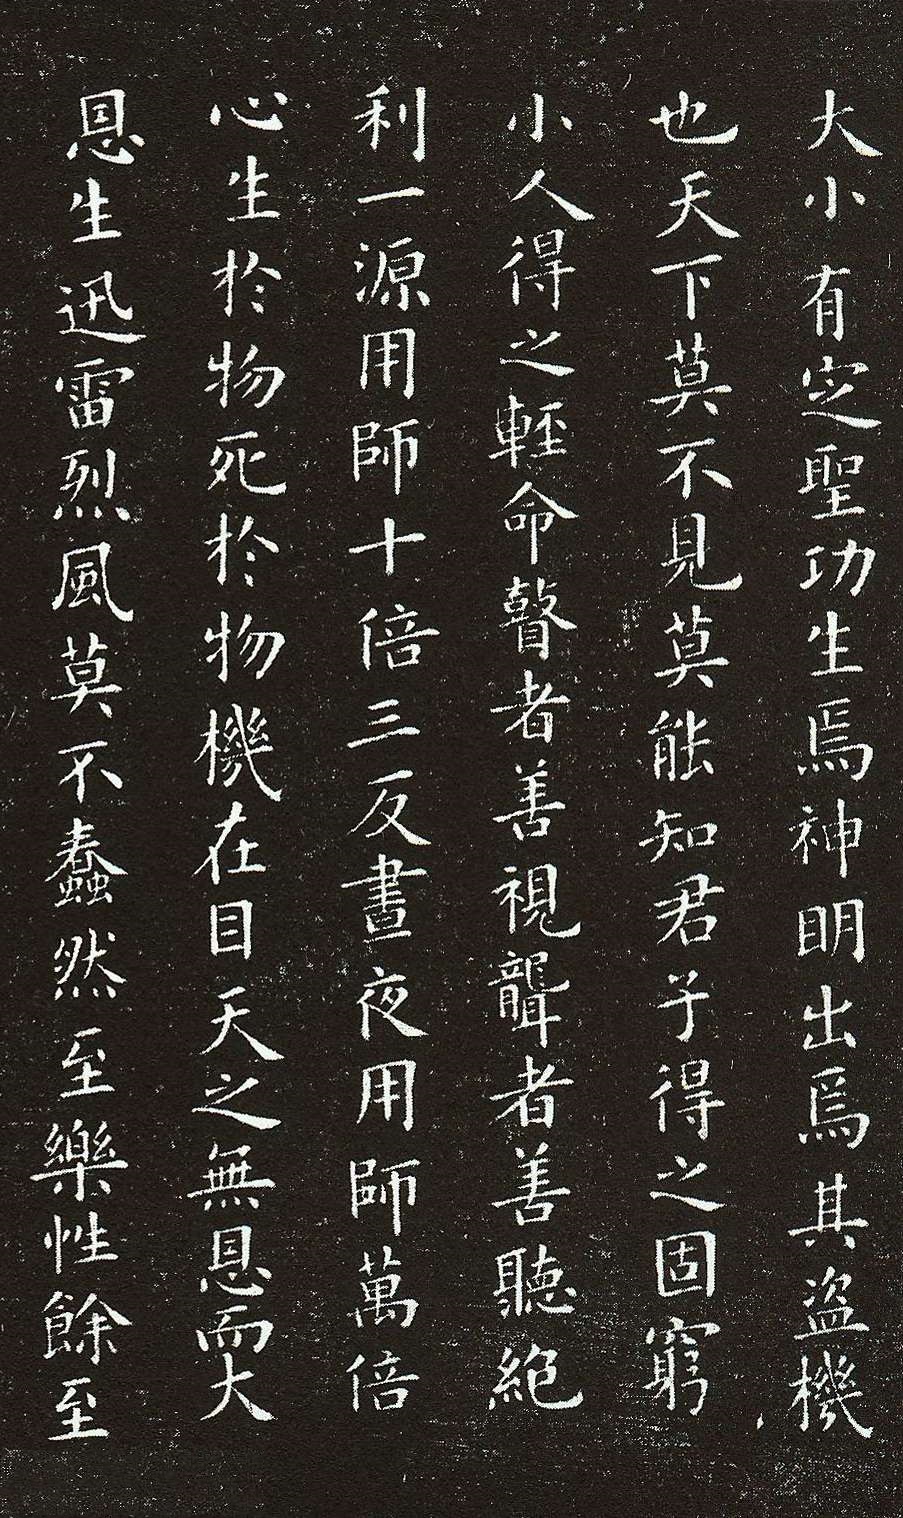 大小有定聖功生焉神明出焉其盜機
也天下莫不見莫能知君子得之固窮
小人得之輕命瞽者善視聾者善聽絕
利一源用師十倍三反晝夜用師萬倍
心生於物死於物機在目天之無恩而大
恩生迅雷烈風莫不蠢然至樂性餘至